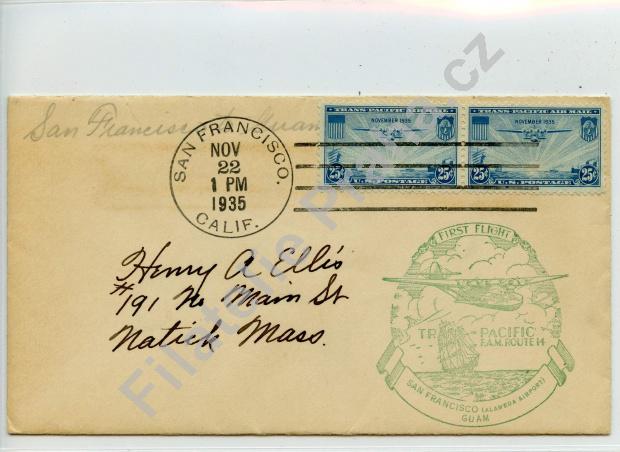 San Francisco to Guam
SAN FRANCISCO,
NOV
22
1 PM
1935
CALIF.
TRANS-PACIFIC AIR MAIL
NOVEMBER 1935
25¢ 25¢
U.S. POSTAGE
TRANS-PACIFIC AIR MAIL
NOVEMBER 1935
25¢ 25¢
U.S. POSTAGE
Henry A. Ellis
#191 No Main St
Natick Mass.
FIRST FLIGHT
TRANS PACIFIC
F.A.M. ROUTE 14
SAN FRANCISCO (ALAMEDA AIRPORT)
GUAM